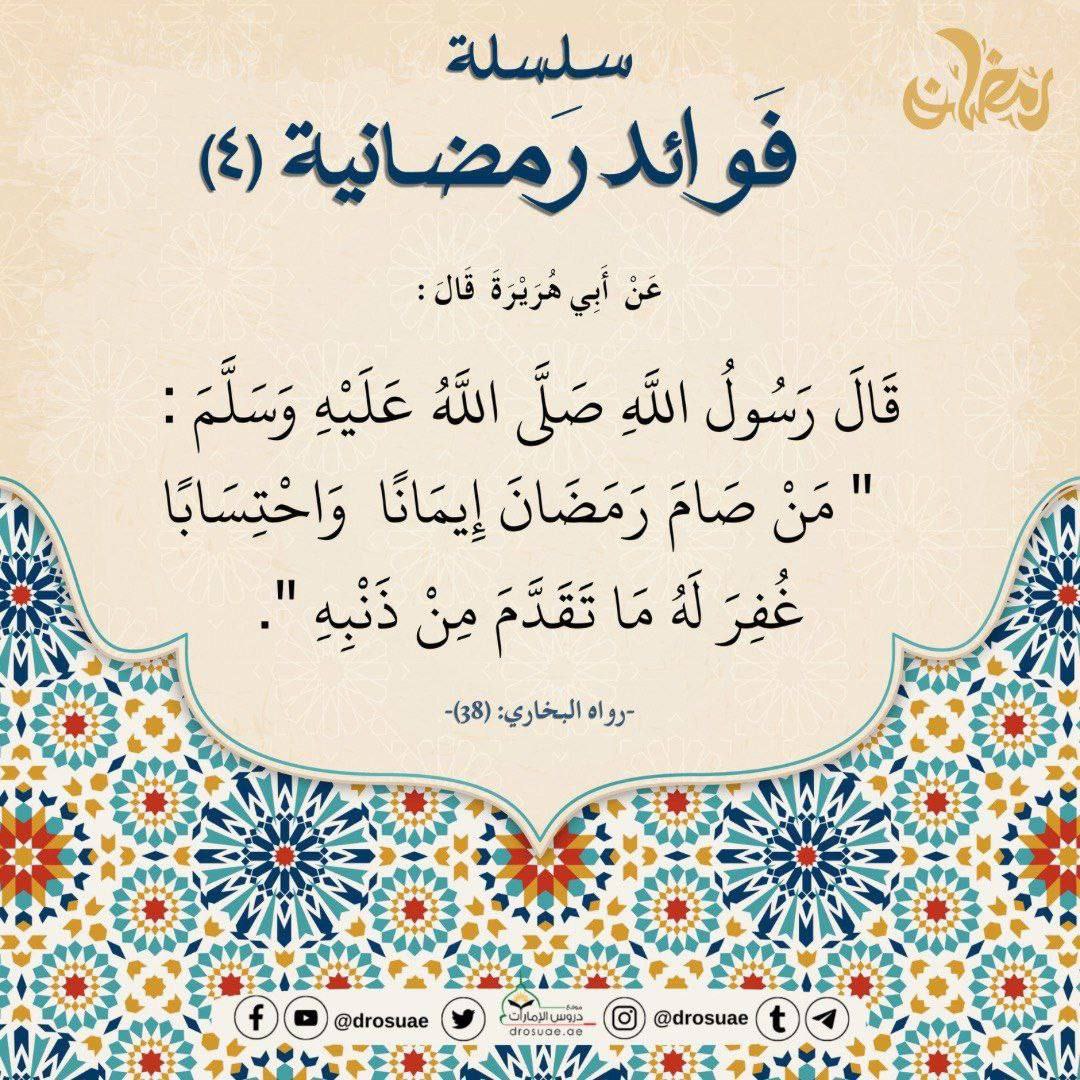 رمضان
سلسلة
فَوائد رَمضانية (٤)
عَنْ أَبِي هُرَيْرَةَ قَالَ :
قَالَ رَسُولُ اللَّهِ صَلَّى اللَّهُ عَلَيْهِ وَسَلَّمَ :
" مَنْ صَامَ رَمَضَانَ إِيمَانًا وَاحْتِسَابًا
غُفِرَ لَهُ مَا تَقَدَّمَ مِنْ ذَنْبِهِ ".
-رواه البخاري: (38)-
@drosuae
موقع
دروس الإمارات
drosuae.ae
@drosuae